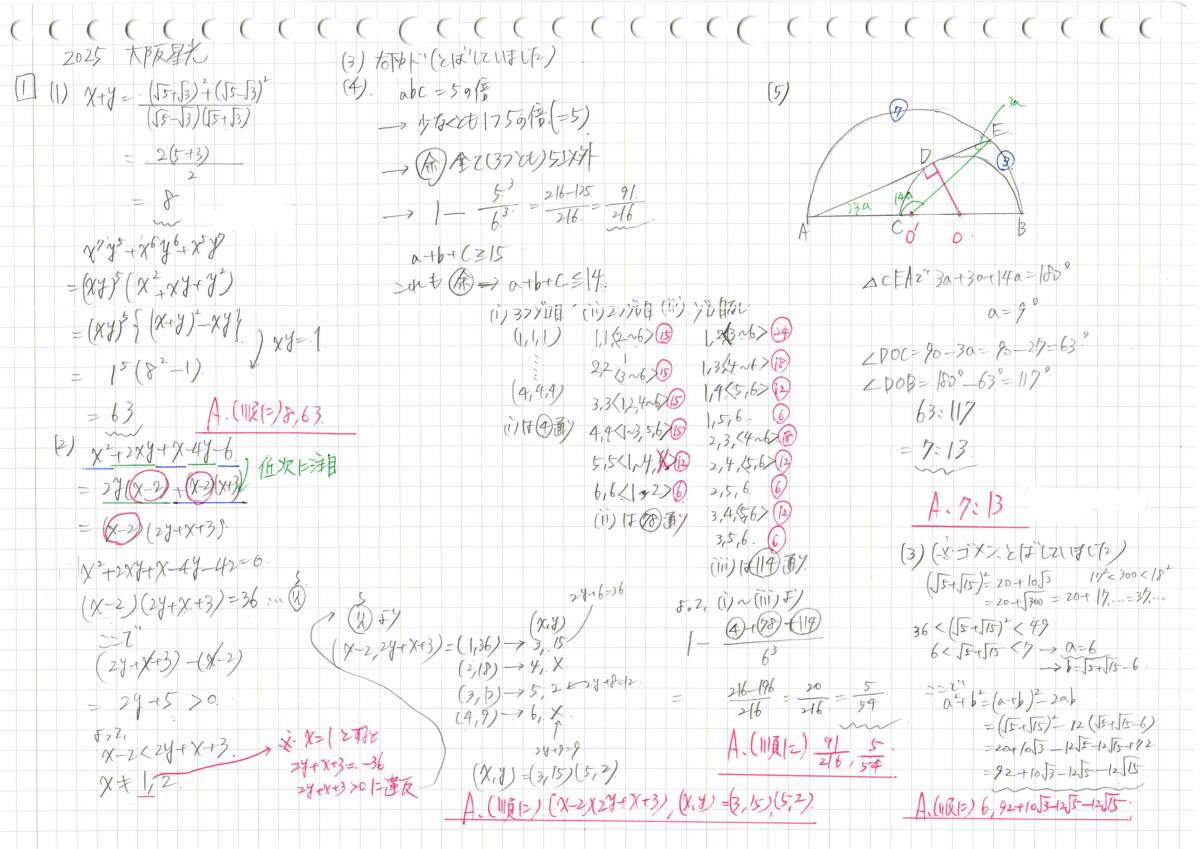 2025 大阪星光
1 (1) x+y = (√5+√3)²+(√5-√3)² / (√5-√3)(√5+√3)
= 2(5+3) / 2
= 8
x⁷y⁵+x⁶y⁶+x⁵y⁷
=(xy)⁵(x²+xy+y²)
=(xy)⁵{(x+y)²-xy}
xy=1
= 1⁵(8²-1)
= 63
A.(順に)8,63
(2) x²+2xy+x-4y-6
低次に注目
= 2y(x-2)+(x-2)(x+3)
= (x-2)(2y+x+3)
x²+2xy+x-4y-42=0
(x-2)(2y+x+3)=36 …
ここで
(2y+x+3)-(x-2)
= 2y+5 >0
よって
x-2<2y+x+3
x≠1,2
※ x=1とすると
2y+x+3=-36
2y+x+3>0に違反
より
(x,y)
2y+6=36
(x-2,2y+x+3)=(1,36)→3,15
(2,18)→4,×
(3,12)→5,2 ←2y+8=12
(4,9)→6,×
2y+9=9
(x,y)=(3,15)(5,2)
A.(順に) (x-2)(2y+x+3), (x,y)=(3,15)(5,2)
(3) 右下(とばしていました)
(4). abc=5の倍
→ 少なくとも1つ5の倍(=5)
→ 余 全て(3つとも)5以外
→ 1- 5³/6³ = 216-125/216 = 91/216
a+b+c≧15
これも余→ a+b+c≦14
(i) 3つゾロ目 (ii) 2つゾロ目 (iii) ゾロ目なし
(1,1,1)
(4,4,4)
(i)は④通り
1,1<2~6>15
2,2<1,3~6>15
3,3<1,2,4~6>15
4,4<1~3,5,6>15
5,5<1~4,>12
6,6<1,2>6
(ii)は78通り
1,2<3~6>24
1,3<4~6>18
1,4<5,6>12
1,5,6. 6
2,3,<4~6>18
2,4,<5,6>12
2,5,6. 6
3,4,<5,6>12
3,5,6. 6
(iii)は114通り
よって (i)~(iii)より
1- 4+78+114 / 6³
= 216-196/216 = 20/216 = 5/54
A.(順に) 91/216, 5/54
(5)
7
3a
E
3
D
14a
3a
A C O' O B
△CEAで 3a+3a+14a=180°
a=9°
∠DOC=90-3a=90-27=63°
∠DOB=180°-63°=117°
63:117
= 7:13
A. 7:13
(3) (※ゴメン、とばしていました)
(√5+√15)²=20+10√3 17²<300<18²
=20+√300 =20+17.…=37.…
36<(√5+√15)²<49
6<√5+√15<7 → a=6
→b=√5+√15-6
ここで
a²+b²=(a+b)²-2ab
=(√5+√15)²-12(√5+√15-6)
=20+10√3-12√5-12√15+72
=92+10√3-12√5-12√15
A.(順に) 6, 92+10√3-12√5-12√15